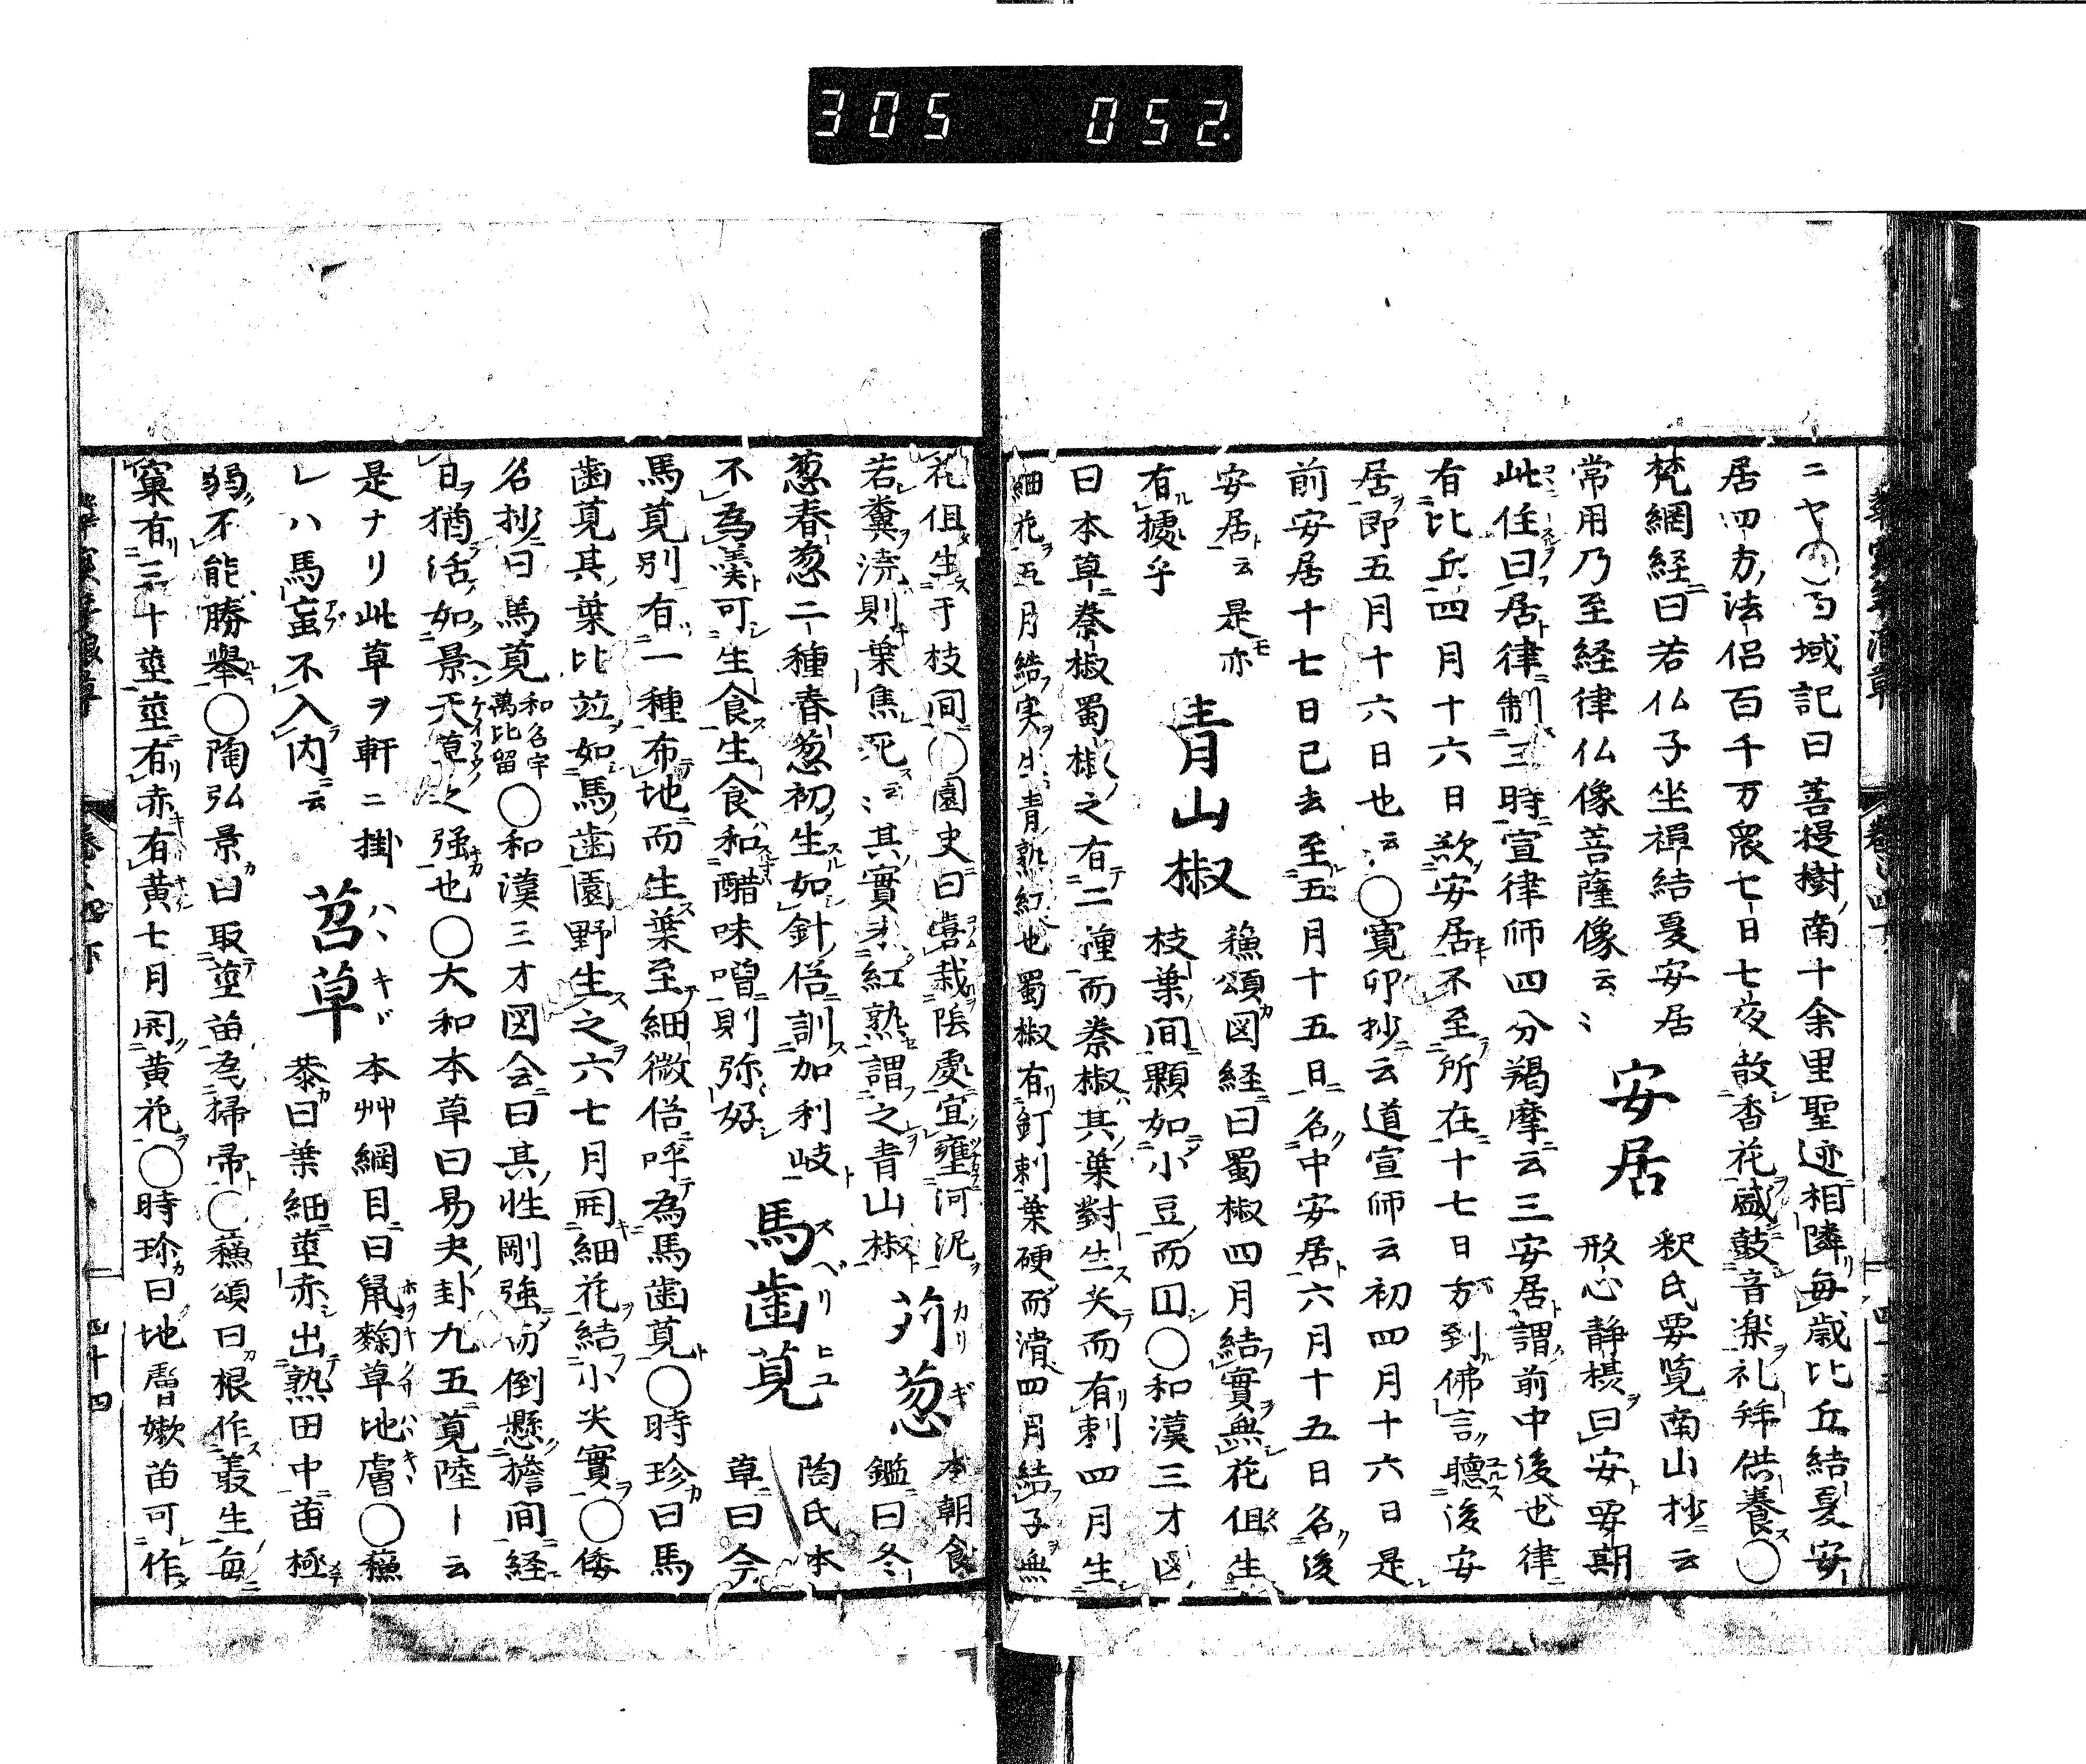 305 052.
ニヤ○西域記曰菩提樹南十余里聖迹相隣毎歳比丘結夏安
居四方法侶百千万衆七日七夜散香花盛鼓音楽礼拜供養○
梵網経曰若仏子坐禪結夏安居
常用乃至経律仏像菩薩像云〻
安居
釈氏要覧南山抄云
形心静摂曰安要期
此住曰居律制三時宣律师四分羯摩云三安居謂前中後也律
有比丘四月十六日欲安居不至所在十七日方到佛言聴後安
居即五月十六日也云〻○寛卯抄云道宣师云初四月十六日是
前安居十七日已去至五月十五日名中安居六月十五日名後
安居云是亦
有據乎
青山椒
蘓頌図経曰蜀椒四月結實無花伹生
枝葉間顆如小豆而囗○和漢三才図
曰本草秦椒蜀椒之有二種而秦椒其葉對生尖而有刺四月生
細花五月結実生青熟紅也蜀椒有釘刺葉硬而滑四月結子無
花伹生于枝間○園史曰喜栽陰處宜壅河泥
若糞澆則葉焦死云〻其實未紅熟謂之青山椒
苅葱
カリギ
本朝食
鑑曰冬
葱春葱二種春葱初生如針俗訓加利岐
不為羹可生食生食和醋味噌則弥好
馬歯莧
スベリヒユ
陶氏本
草曰今
馬莧別有一種布地而生葉至細微俗呼為馬歯莧○時珍曰馬
歯莧其葉比竝如馬歯園野生之六七月開細花結小尖實○倭
名抄曰馬莧
和名宇
萬比留
○和漢三才図会曰其性剛強而倒懸擔間経
日猶活如景天草之強也○大和本草曰易夬卦九五莧陸ー云
是ナリ此草ヲ軒ニ掛
レハ馬蝱不入内云
苕草
ハヽキヾ
本艸綱目曰鼠麹草地膚○蘓
恭曰葉細莖赤出熟田中苗極
弱不能勝舉○陶弘景曰取莖苗為掃帚○蘓頌曰根作叢生毎
窠有三十莖莖有赤有黄七月開黄花○時珍曰地膚嫰苗可作
四十四